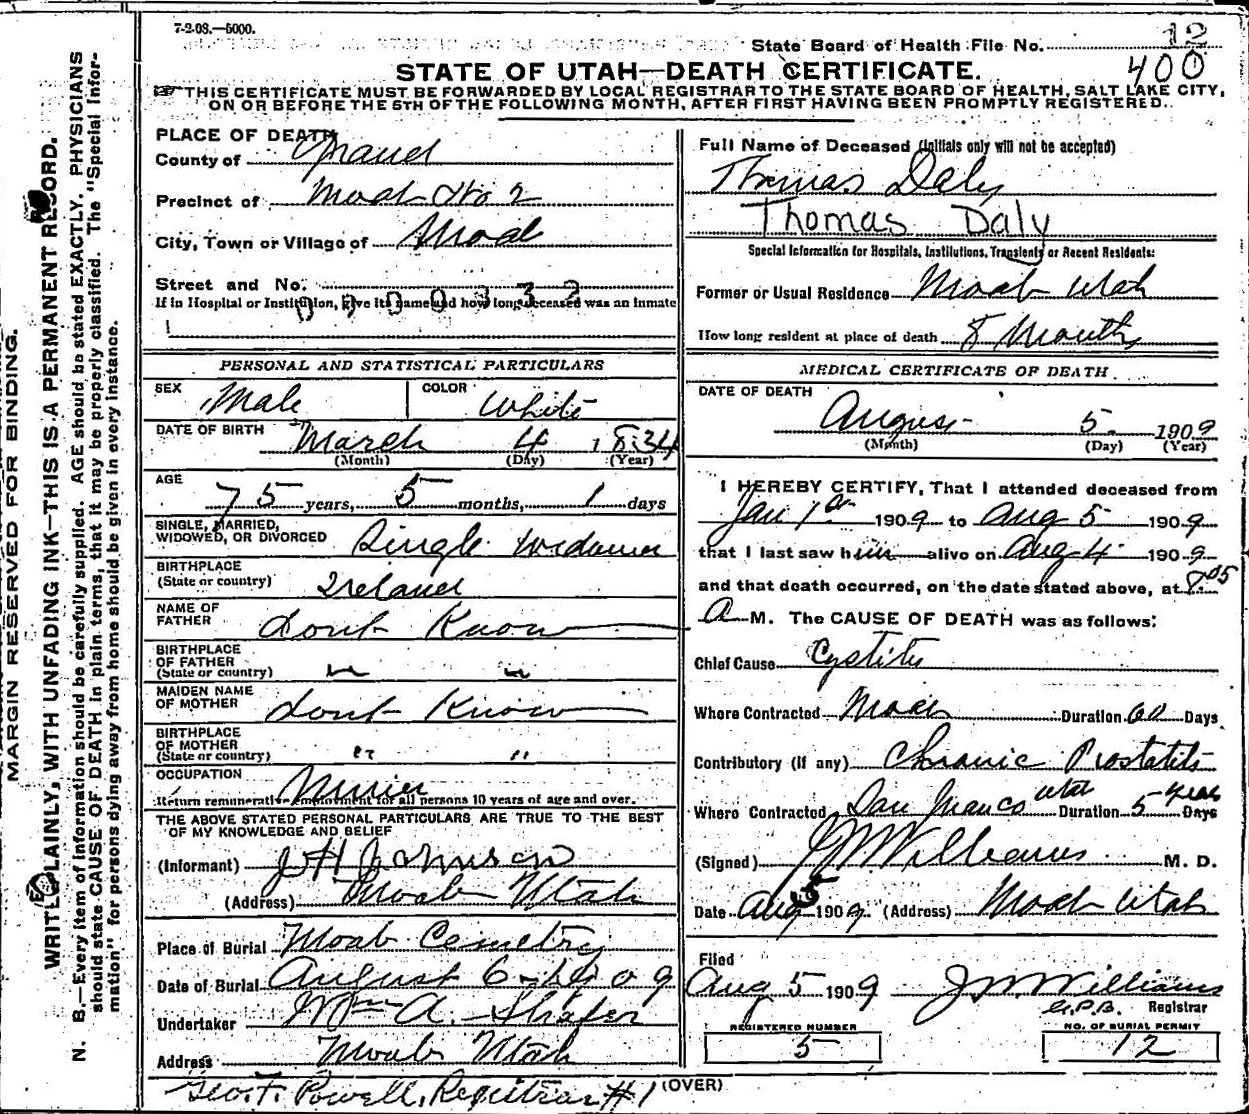 7-2-08.—5000.
12
State Board of Health File No.
400
STATE OF UTAH—DEATH CERTIFICATE.
THIS CERTIFICATE MUST BE FORWARDED BY LOCAL REGISTRAR TO THE STATE BOARD OF HEALTH, SALT LAKE CITY,
ON OR BEFORE THE 5TH OF THE FOLLOWING MONTH, AFTER FIRST HAVING BEEN PROMPTLY REGISTERED.
PLACE OF DEATH
County of Grand
Precinct of Moab No 2
City, Town or Village of Moab
Street and No.
If in Hospital or Institution, give its name and how long deceased was an inmate
PERSONAL AND STATISTICAL PARTICULARS
SEX Male COLOR White
DATE OF BIRTH March 4 1834
(Month) (Day) (Year)
AGE 75 years, 5 months, 1 days
SINGLE, MARRIED,
WIDOWED, OR DIVORCED Single widower
BIRTHPLACE
(State or country) Ireland
NAME OF
FATHER dont Know
BIRTHPLACE
OF FATHER
(State or country) " "
MAIDEN NAME
OF MOTHER dont Know
BIRTHPLACE
OF MOTHER
(State or country) " "
OCCUPATION Miner
Return remunerative employment for all persons 10 years of age and over.
THE ABOVE STATED PERSONAL PARTICULARS ARE TRUE TO THE BEST
OF MY KNOWLEDGE AND BELIEF
(Informant) J H Johnson
(Address) Moab Utah
Place of Burial Moab Cemetry
Date of Burial August 6 - 1909
Undertaker Wm A. Shafer
Address Moab Utah
Geo. F. Powell, Registrar #1
Full Name of Deceased (Initials only will not be accepted)
Thomas Daly
Thomas Daly
Special Information for Hospitals, Institutions, Transients or Recent Residents:
Former or Usual Residence Moab Utah
How long resident at place of death 8 Months
MEDICAL CERTIFICATE OF DEATH
DATE OF DEATH
August 5 1909
(Month) (Day) (Year)
I HEREBY CERTIFY, That I attended deceased from
Jan 1st 1909 to Aug 5 1909
that I last saw him alive on Aug 4 1909
and that death occurred, on the date stated above, at 8.05
a M. The CAUSE OF DEATH was as follows:
Chief Cause Cystitis
Where Contracted Moab Duration 60 Days
Contributory (if any) Chronic Prostatitis
Where Contracted Utah Duration 5 years Days
(Signed) J W Williams M. D.
Date Aug 5 1909. (Address) Moab Utah
Filed
Aug 5 1909 J W Williams
G.P.B. Registrar
REGISTERED NUMBER
5
NO. OF BURIAL PERMIT
12
(OVER)
MARGIN RESERVED FOR BINDING.
WRITE PLAINLY, WITH UNFADING INK—THIS IS A PERMANENT RECORD.
N. B.—Every item of information should be carefully supplied. AGE should be stated EXACTLY. PHYSICIANS
should state CAUSE OF DEATH in plain terms, that it may be properly classified. The "Special Infor-
mation" for persons dying away from home should be given in every instance.